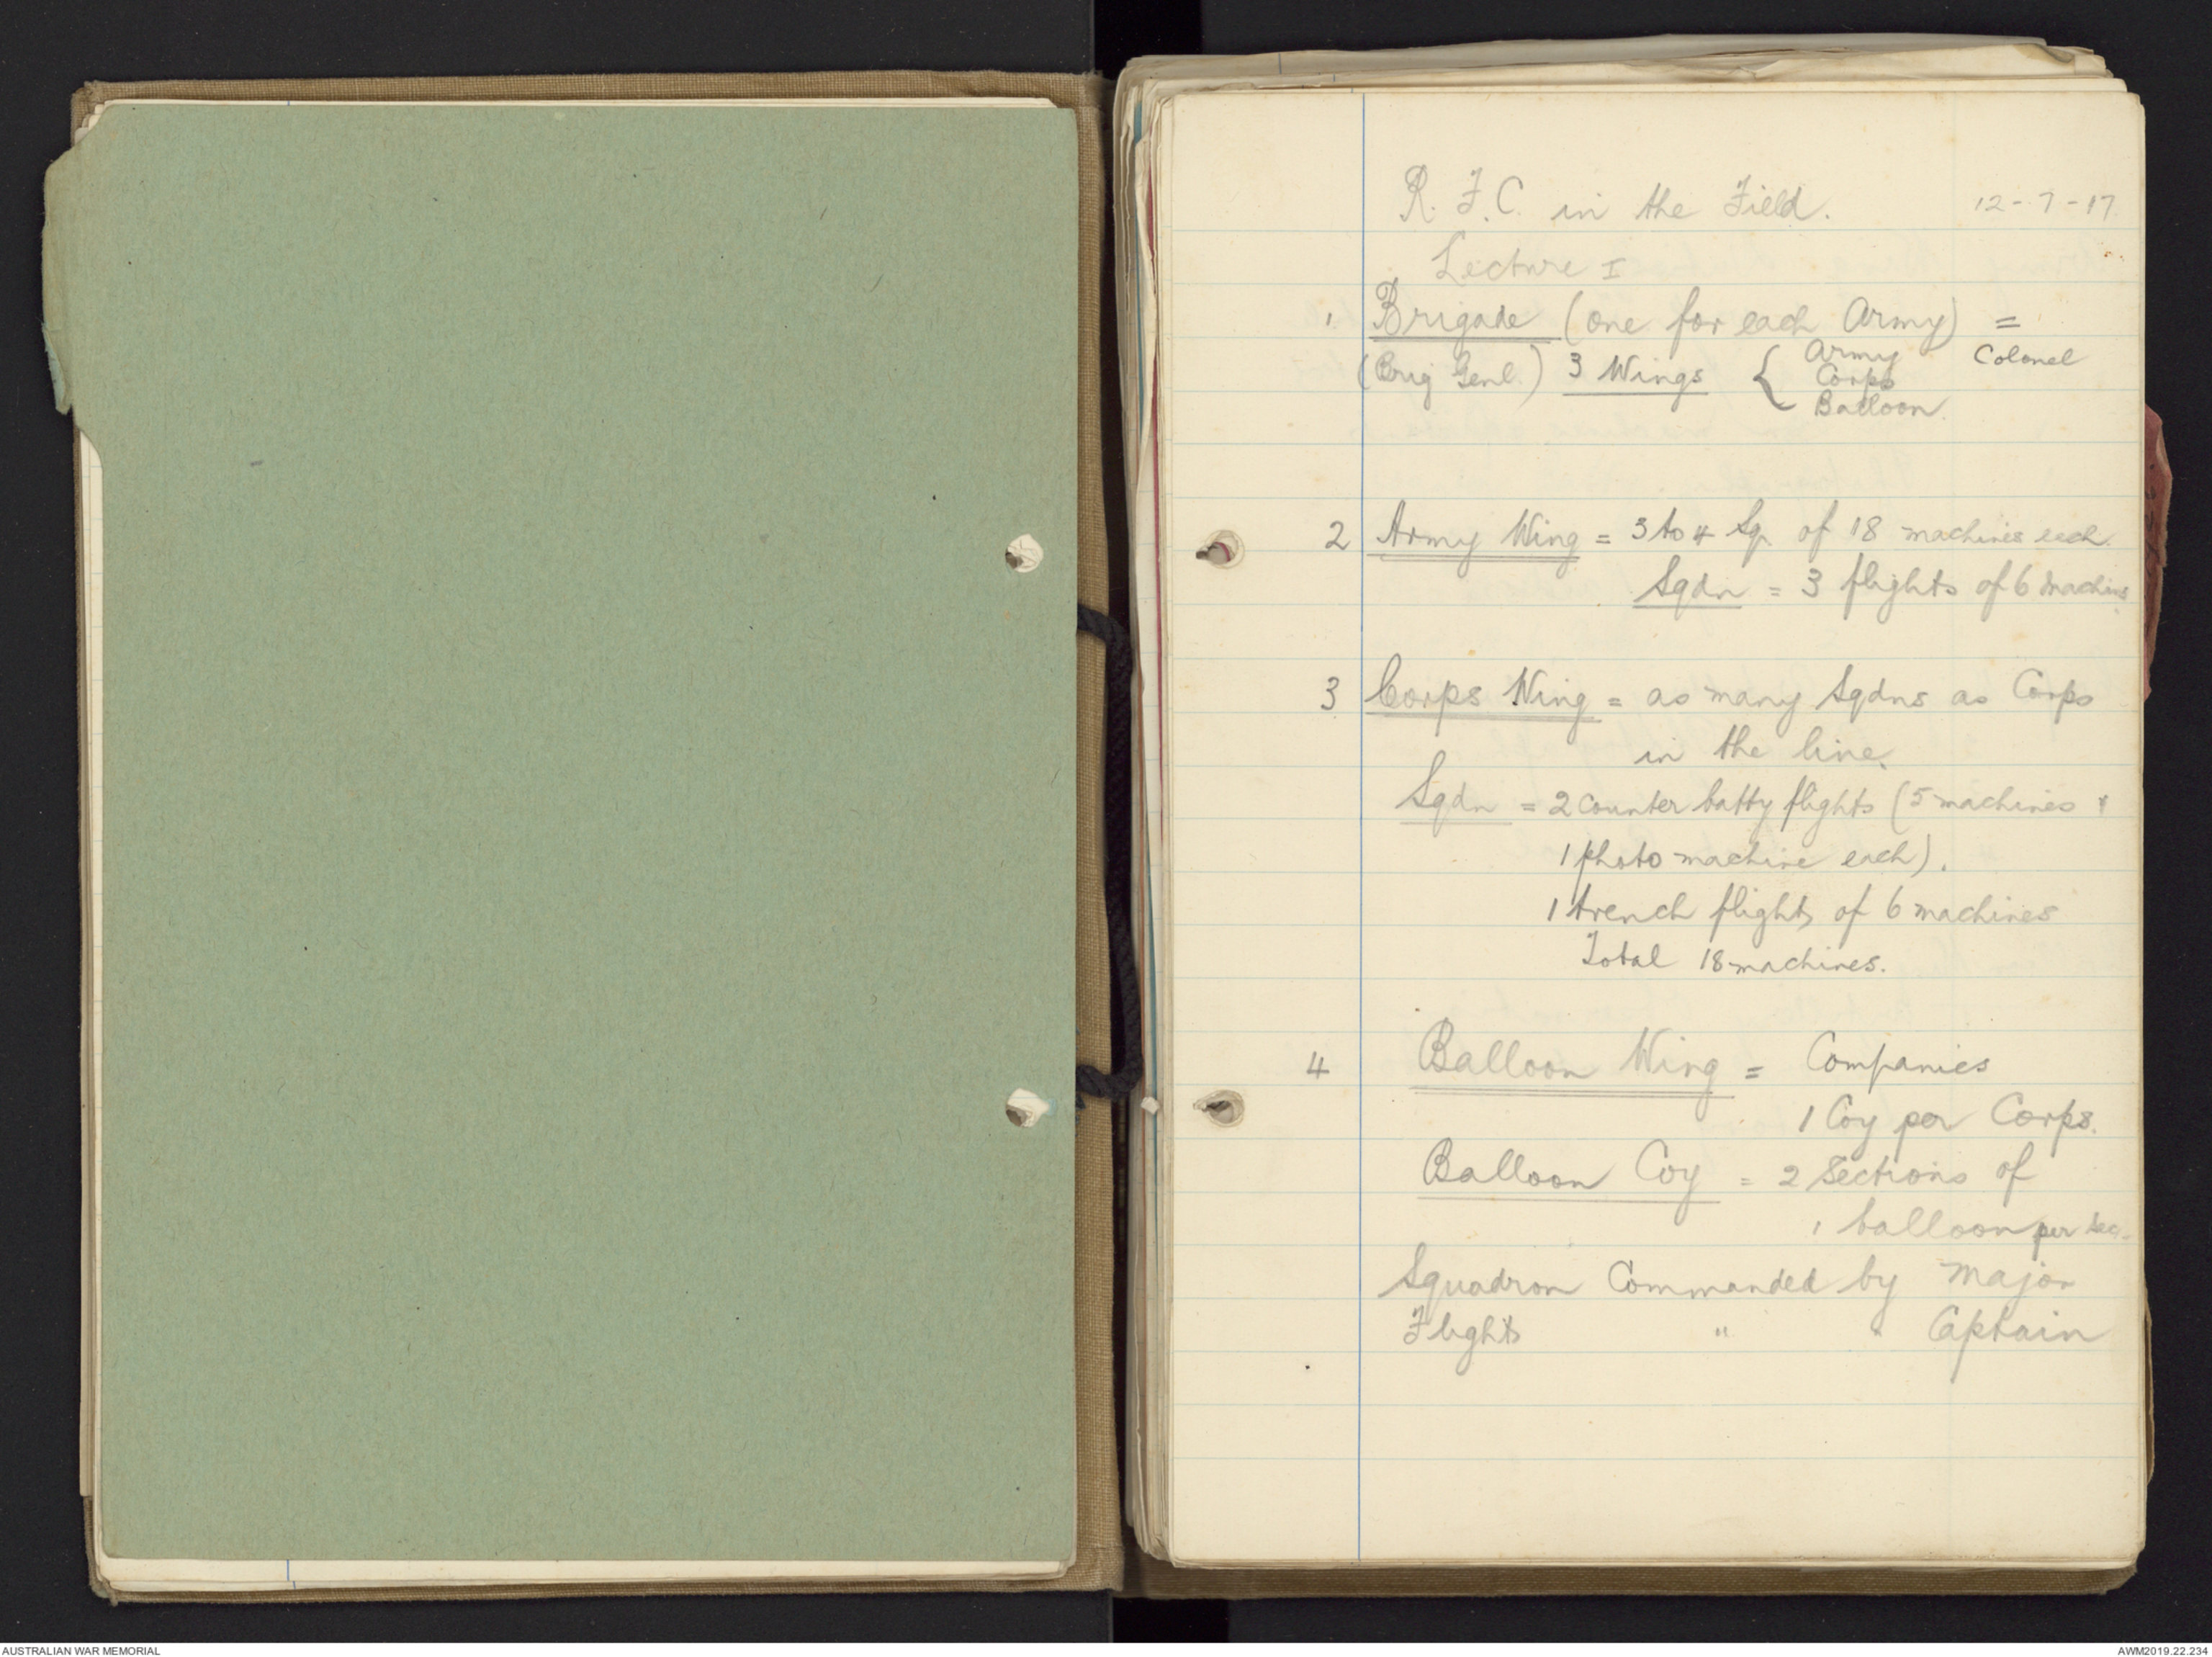 R. F. C. in the Field. 12-7-17
Lecture I
1 Brigade (one for each Army) =
(Brig Genl.) 3 Wings { Army Colonel
Corps
Balloon.
2 Army Wing = 3 to 4 Sq. of 18 machines each.
Sqdn = 3 flights of 6 machines
3 Corps Wing = as many Sqdns as Corps
in the line.
Sqdn = 2 Counter batty flights (5 machines &
1 photo machine each).
1 trench flight, of 6 machines
Total 18 machines.
4 Balloon Wing = Companies
1 Coy per Corps.
Balloon Coy = 2 Sections of
1 balloon per Sec.
Squadron Commanded by Major
Flights " " Captain
AUSTRALIAN WAR MEMORIAL AWM2019.22.234